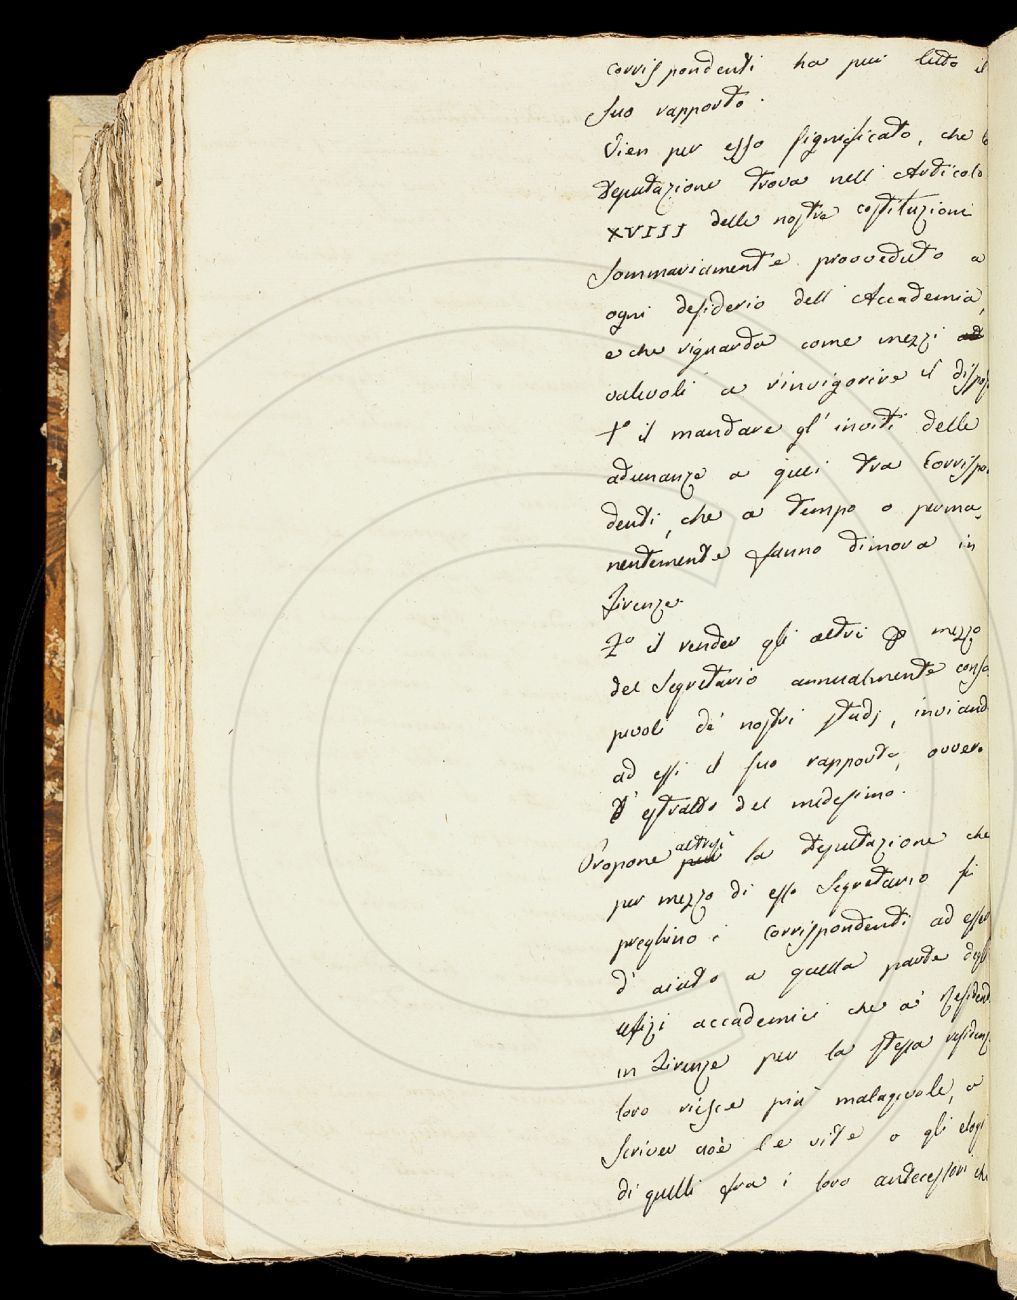 corrispondenti ha pui letto il
suo rapporto.
Vien per esso significato, che la
Deputazione trova nell'Articolo
XVIII delle nostre costituzioni
sommariamente provveduto a
ogni desiderio dell'Accademia,
e che riguarda come mezzi
valevoli a rinvigorire il dispos
1º il mandare gl'inviti delle
adunanze a quei tra Corrispon
denti, che a tempo o perma-
nentemente fanno dimora in
Firenze.
2º il render gli altri p mezzo
del Segretario annualmente consa
pevoli de' nostri studj, inviando
ad essi il suo rapporto, ovvero
l'estratto del medesimo.
Propone altresì la Deputazione che
per mezzo di esso Segretario si
preghino i Corrispondenti ad esser
d'aiuto a quella parte degli
ufizi accademici che a' Residenti
in Firenze per la stessa residenza
loro riesce più malagevole, a
scriver cioè le vite o gli elogi
di quelli fra i loro antecessori che